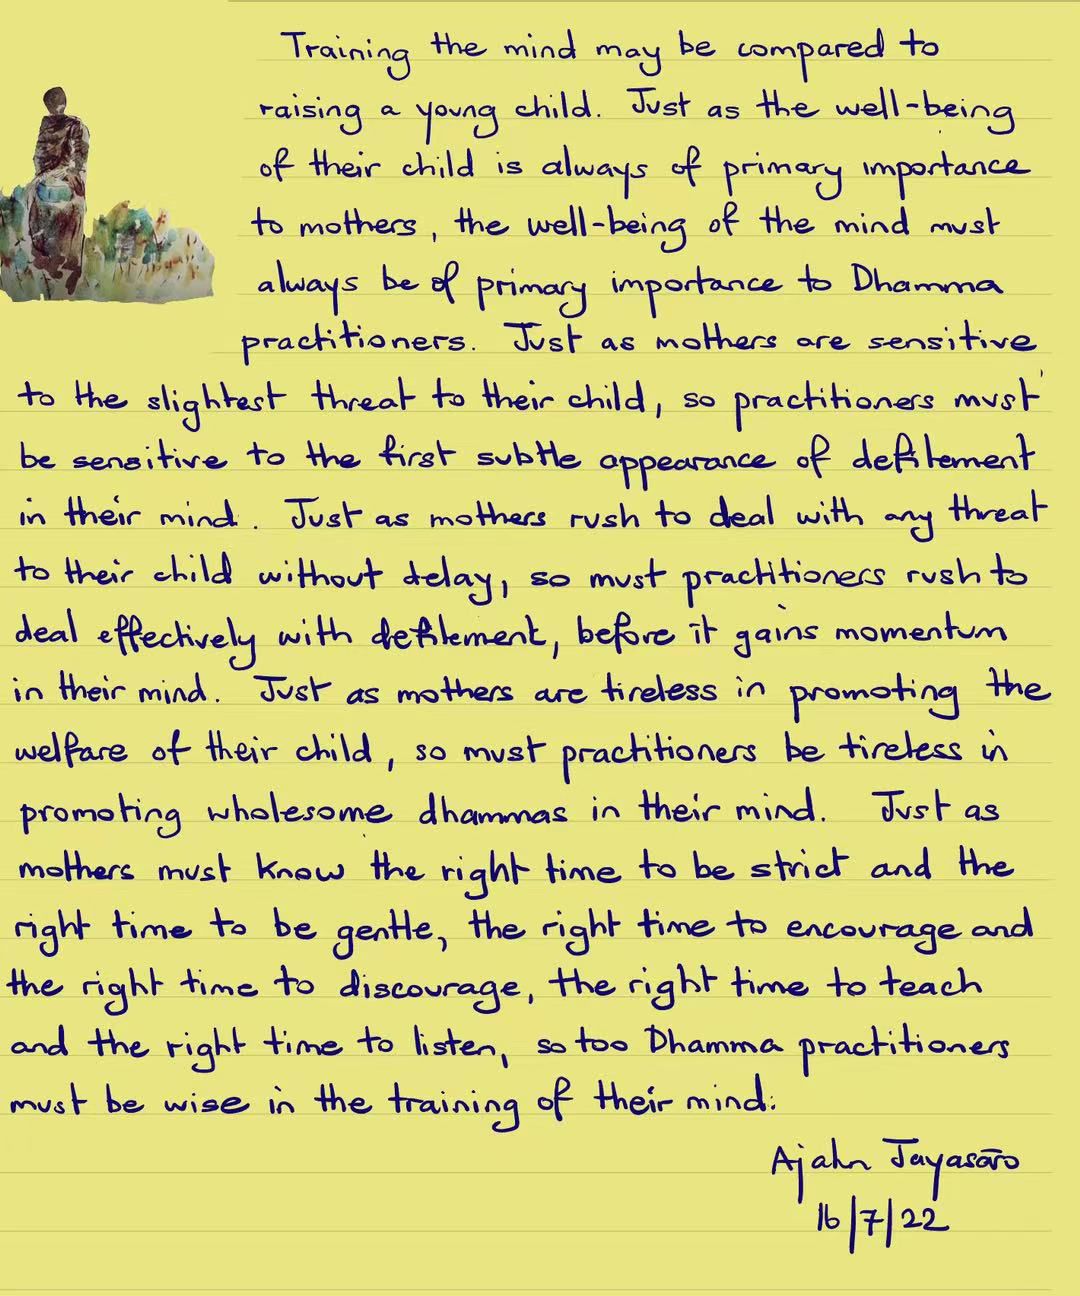 Training the mind may be compared to
raising a young child. Just as the well-being
of their child is always of primary importance
to mothers, the well-being of the mind must
always be of primary importance to Dhamma
practitioners. Just as mothers are sensitive
to the slightest threat to their child, so practitioners must
be sensitive to the first subtle appearance of defilement
in their mind. Just as mothers rush to deal with any threat
to their child without delay, so must practitioners rush to
deal effectively with defilement, before it gains momentum
in their mind. Just as mothers are tireless in promoting the
welfare of their child, so must practitioners be tireless in
promoting wholesome dhammas in their mind. Just as
mothers must know the right time to be strict and the
right time to be gentle, the right time to encourage and
the right time to discourage, the right time to teach
and the right time to listen, so too Dhamma practitioners
must be wise in the training of their mind.
Ajahn Jayasāro
16/7/22